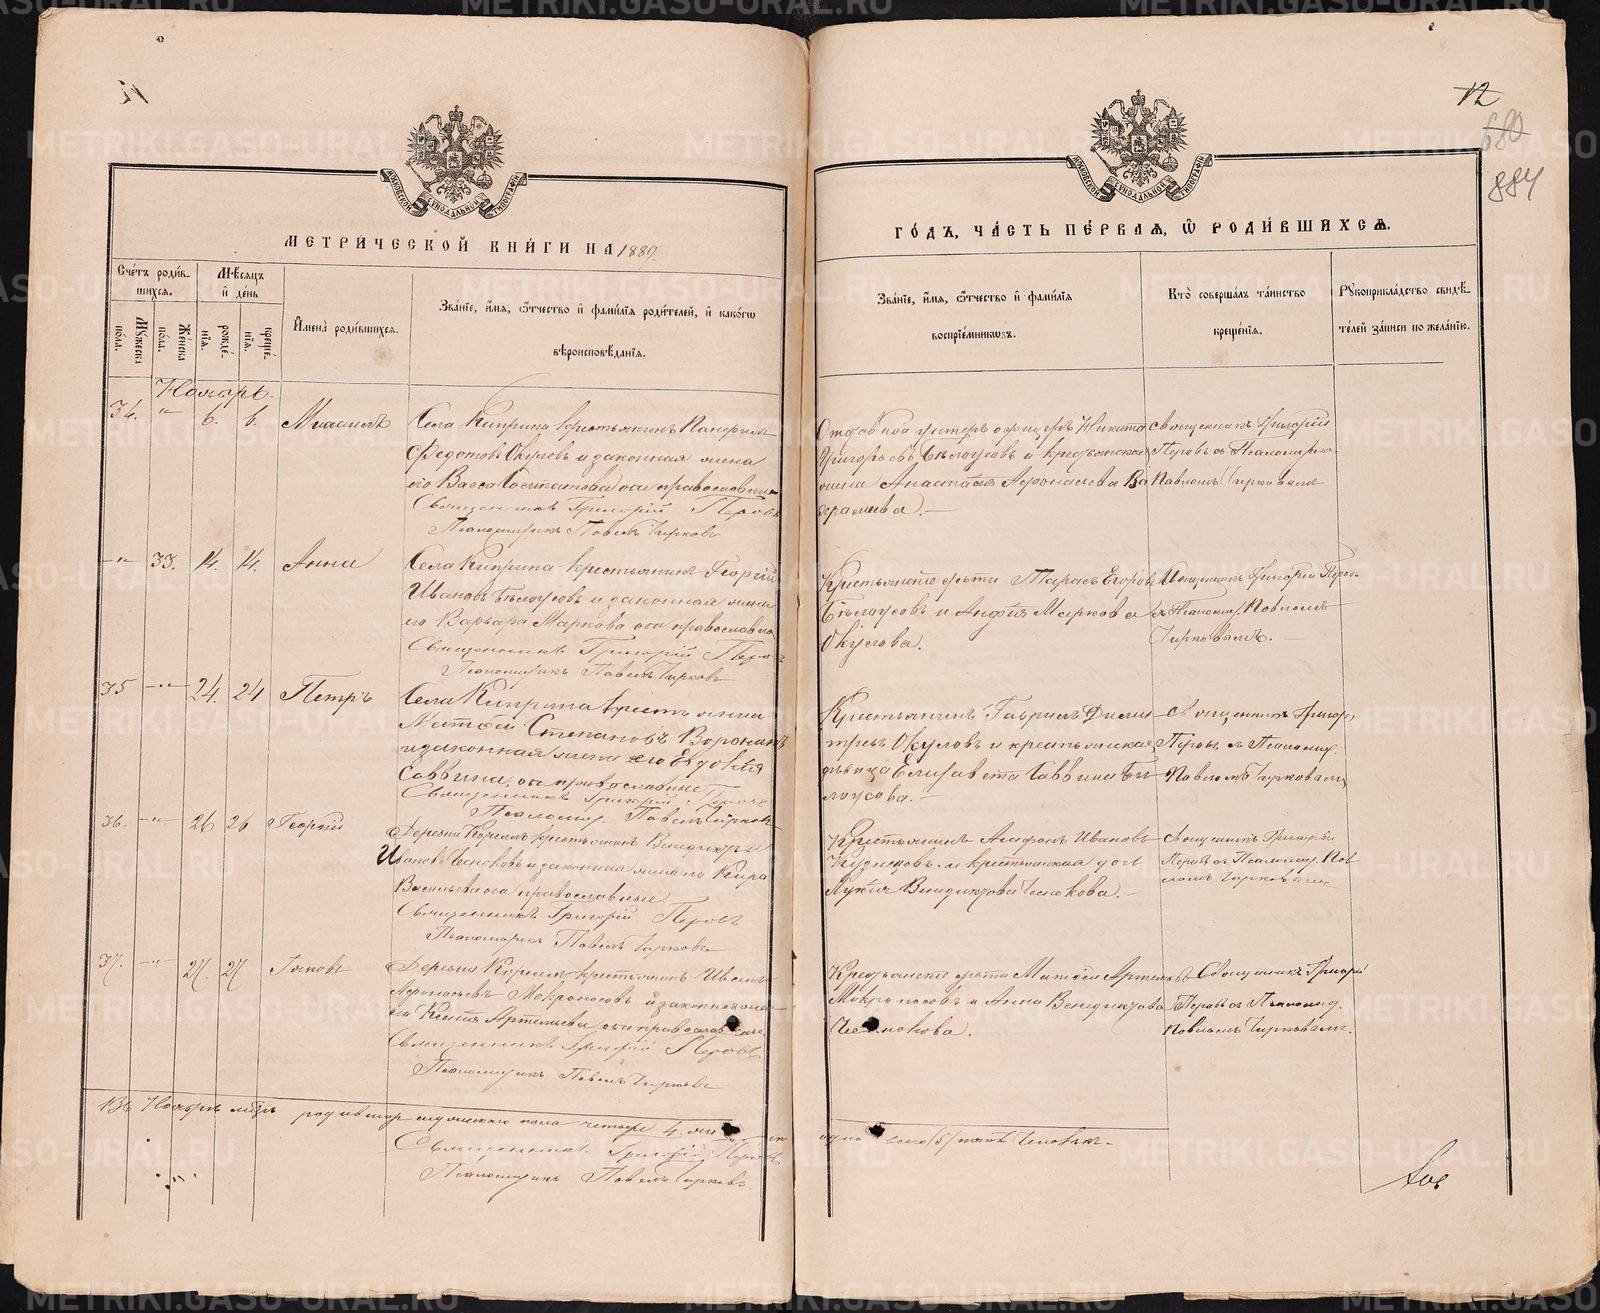 12
680
884
МЕТРИЧЕСКОЙ КНИГИ НА 1889.
Счетъ родившихся.
Мѣсяцъ и день
Мужеска пола.
Женска пола.
рожденія.
крещенія.
Имена родившихся.
Званіе, имя, отчество и фамилія родителей, и какого
вѣроисповѣданія.
Ноябрь.
34. -"- 6. 6. Михаилъ
Села Киприна крестьянинъ Панфилъ
Федотовъ Окуловъ и законная жена
его Васса оба православные
Священникъ Григорій Перовъ
Псаломщикъ Павелъ Чирковъ
-"- 33. 14. 14. Анна
Села Киприна крестьянинъ Георгій
Ивановъ Бѣлоусовъ и законная жена
его Варвара Маркова оба православные
Священникъ Григорій Перовъ
Псаломщикъ Павелъ Чирковъ
35 -"- 24. 24 Петръ
Села Киприна крестьянинъ
Матвей Степановъ Воронинъ
и законная жена его Евдокія
Саввина, оба православные
Священникъ Григорій Перовъ
Псаломщ. Павелъ Чирковъ
36. -"- 26 26 Георгій
Деревни крестьянинъ Венедиктъ
Ивановъ Чесноковъ и законная жена его Кира
Васильева оба православные
Священникъ Григорій Перовъ
Псаломщикъ Павелъ Чирковъ
37. -"- 27. 27 Іаковъ
Деревни крестьянинъ Иванъ
Афонасьевъ Мокроносовъ и законная жена
его Ксенія Артемьева оба православные
Священникъ Григорій Перовъ
Псаломщикъ Павелъ Чирковъ
Въ Ноябрѣ мѣсяцѣ мужескаго пола четыре 4
Священникъ Григорій Перовъ
Псаломщикъ Павелъ Чирковъ
ГОДЪ, ЧАСТЬ ПЕРВАЯ, Ѡ РОДИВШИХСЯ.
Званіе, имя, отчество и фамилія
воспріемниковъ.
Кто совершалъ таинство
крещенія.
Рукоприкладство свидѣтелей записи по желанію.
Отставной унтеръ офицеръ Никита
Григорьевъ Бѣлоусовъ и крестьянская
жена Анастасія Афонасьева
Священникъ Григорій
Перовъ съ Псаломщикомъ
Павломъ Чирковымъ
Крестьянскіе дѣти Тарасъ Егоровъ
Бѣлоусовъ и Анфія Маркова
Окулова.
Священникъ Григорій Перовъ
съ Псаломщ. Павломъ
Чирковымъ.
Крестьянинъ Гавріилъ Димитріевъ Окуловъ и крестьянская
дѣвица Елисавета Саввина Бѣлоусова.
Священникъ Григорій
Перовъ съ Псаломщ.
Павломъ Чирковымъ
Крестьянинъ Агафонъ Ивановъ
Кузнецовъ и крестьянская дочь
Лукія Венедиктова Чеснокова.
Священникъ Григорій
Перовъ съ Псаломщ. Павломъ Чирковымъ
Крестьянскіе дѣти Матвей Артемьевъ
Мокроносовъ и Анна Венедиктова
Чеснокова.
Священникъ Григорій
Перовъ съ Псаломщ.
Павломъ Чирковымъ.
одно всего (5) пять человѣкъ.